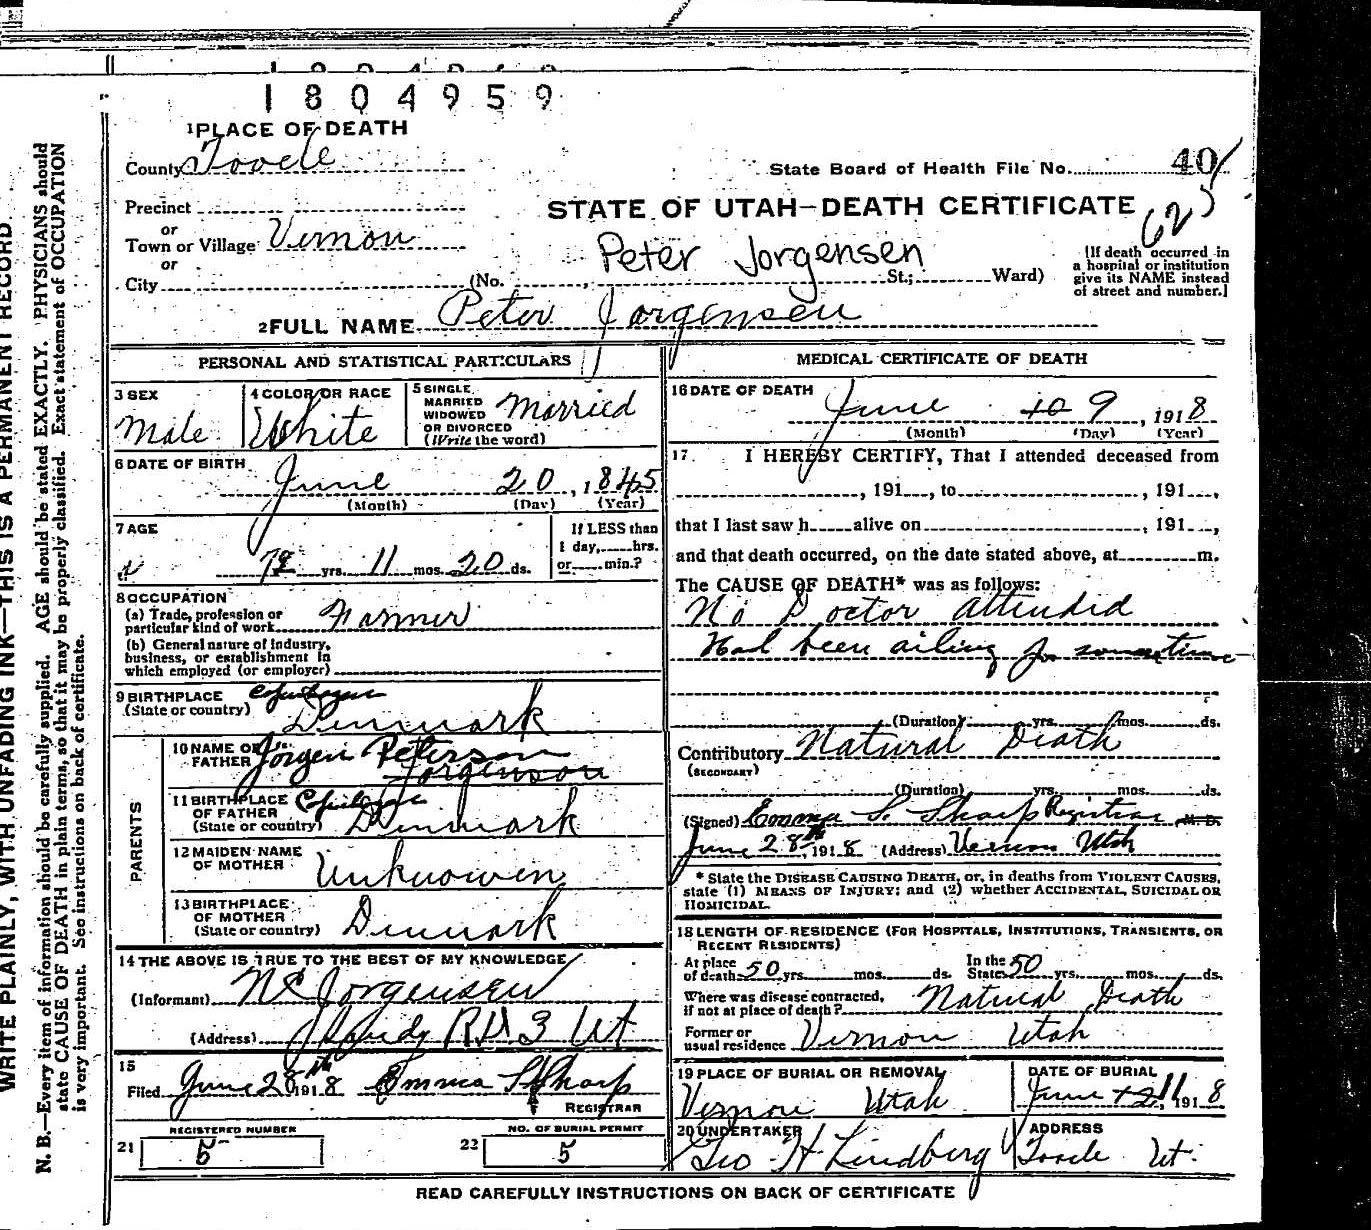 1804959
1 PLACE OF DEATH
County Tooele
State Board of Health File No. 40
Precinct
or
Town or Village Vernon
or
City
STATE OF UTAH—DEATH CERTIFICATE
Peter Jorgensen
(No. St.; Ward)
[If death occurred in
a hospital or institution
give its NAME instead
of street and number.]
2 FULL NAME Peter Jorgensen
PERSONAL AND STATISTICAL PARTICULARS
3 SEX
Male
4 COLOR OR RACE
White
5 SINGLE,
MARRIED
WIDOWED
OR DIVORCED
(Write the word)
Married
6 DATE OF BIRTH
June 20, 1845
(Month) (Day) (Year)
7 AGE
yrs. 11 mos. 20 ds.
If LESS than
1 day, hrs.
or min.?
8 OCCUPATION
(a) Trade, profession or
particular kind of work Farmer
(b) General nature of industry,
business, or establishment in
which employed (or employer)
9 BIRTHPLACE
(State or country)
Copenhagen
Denmark
PARENTS
10 NAME OF
FATHER
Jorgen Peterson
Jorgenson
11 BIRTHPLACE
OF FATHER
(State or country)
Copenhagen
Denmark
12 MAIDEN NAME
OF MOTHER
Unknowen
13 BIRTHPLACE
OF MOTHER
(State or country)
Denmark
14 THE ABOVE IS TRUE TO THE BEST OF MY KNOWLEDGE
(Informant) Jorgensen
(Address) Sandy 3 Ut
15
Filed June 28th 1918 Emma S Sharp
REGISTRAR
REGISTERED NUMBER
21 5
NO. OF BURIAL PERMIT
22 5
MEDICAL CERTIFICATE OF DEATH
16 DATE OF DEATH
June 10 9, 1918
(Month) (Day) (Year)
17 I HEREBY CERTIFY, That I attended deceased from
, 191 , to , 191 ,
that I last saw h alive on , 191 ,
and that death occurred, on the date stated above, at m.
The CAUSE OF DEATH* was as follows:
No Doctor attended
Had been ailing for sometime
(Duration) yrs. mos. ds.
Contributory Natural Death
(SECONDARY)
(Duration) yrs. mos. ds.
(Signed) Emma S. Sharp Registrar M. D.
June 28th, 1918 (Address) Vernon Utah
* State the DISEASE CAUSING DEATH, or, in deaths from VIOLENT CAUSES,
state (1) MEANS OF INJURY; and (2) whether ACCIDENTAL, SUICIDAL OR
HOMICIDAL.
18 LENGTH OF RESIDENCE (FOR HOSPITALS, INSTITUTIONS, TRANSIENTS, OR
RECENT RESIDENTS)
At place
of death 50 yrs. mos. ds.
In the
State 50 yrs. mos. ds.
Where was disease contracted,
if not at place of death? Natural Death
Former or
usual residence Vernon Utah
19 PLACE OF BURIAL OR REMOVAL
Vernon Utah
DATE OF BURIAL
June 11, 1918
20 UNDERTAKER
Geo H Lindberg
ADDRESS
Tooele Ut.
READ CAREFULLY INSTRUCTIONS ON BACK OF CERTIFICATE
WRITE PLAINLY, WITH UNFADING INK—THIS IS A PERMANENT RECORD
N. B.—Every item of information should be carefully supplied. AGE should be stated EXACTLY. PHYSICIANS should
state CAUSE OF DEATH in plain terms, so that it may be properly classified. Exact statement of OCCUPATION
is very important. See instructions on back of certificate.